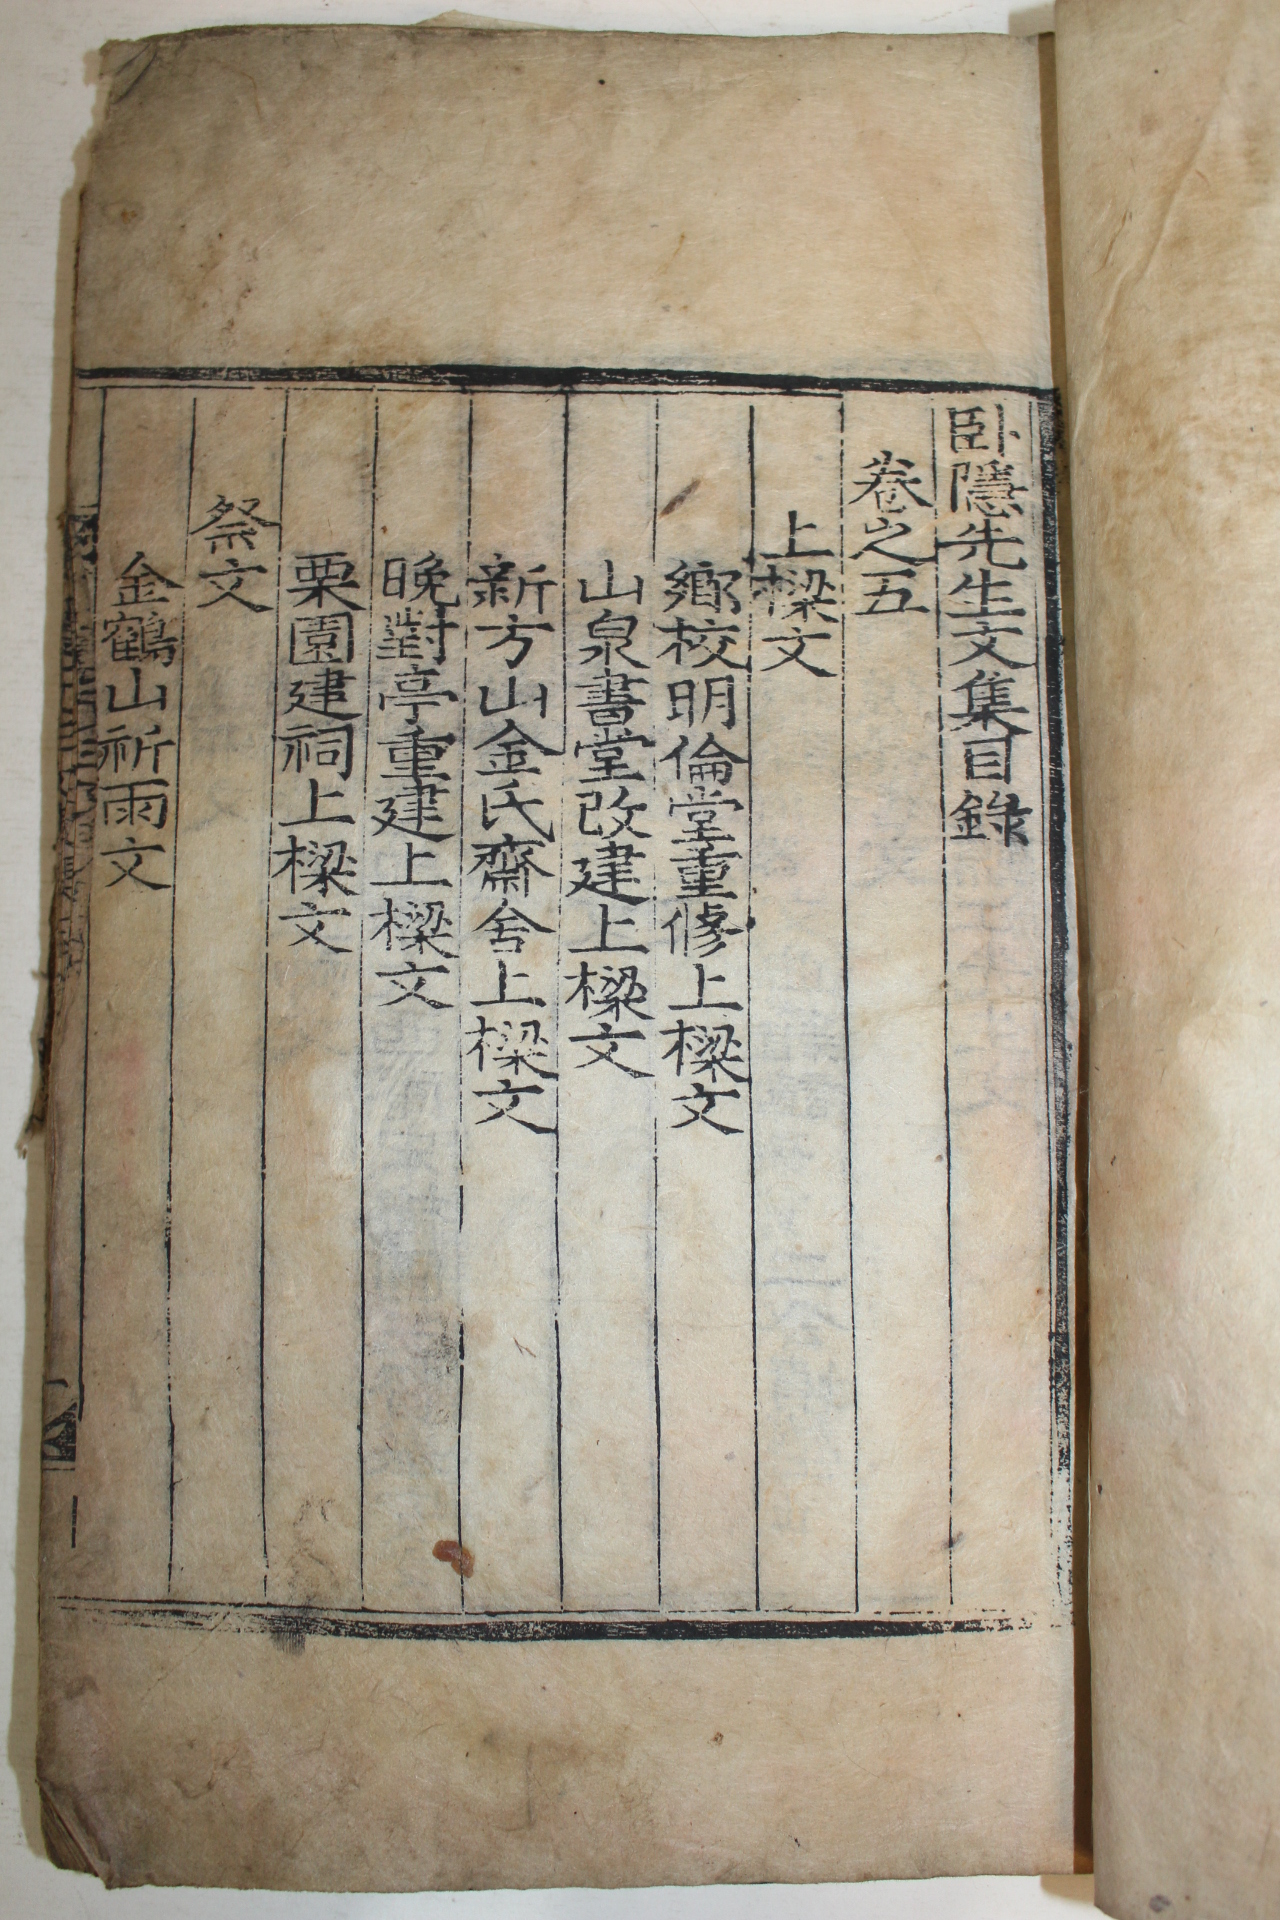 臥隱先生文集目錄
卷之五
上樑文
鄕校明倫堂重修上樑文
山泉書堂改建上樑文
新方山金氏齋舍上樑文
晩對亭重建上樑文
栗園建祠上樑文
祭文
金鶴山祈雨文